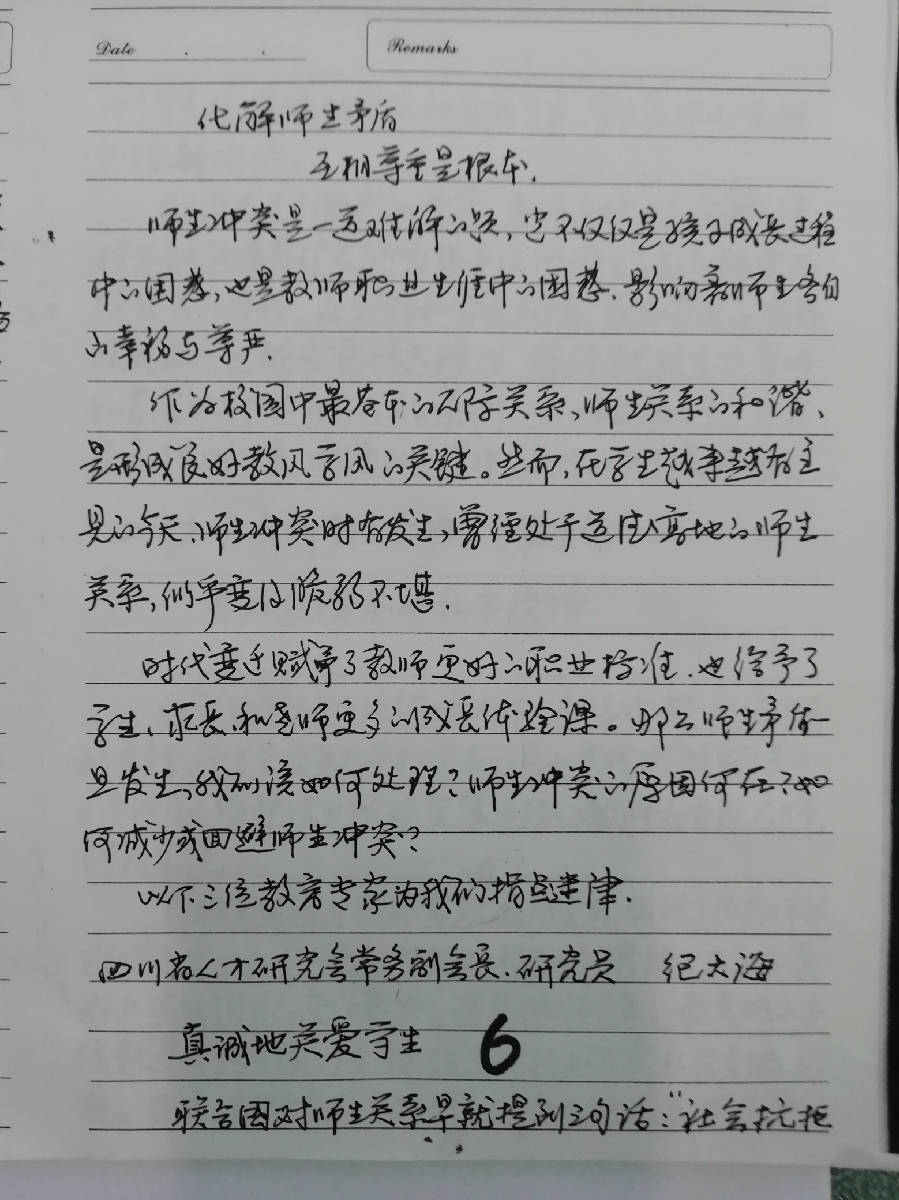 Date
Remarks
化解师生矛盾
互相尊重是根本.
师生冲突是一道难解的题,它不仅仅是孩子成长过程
中的困惑,也是教师职业生涯中的困惑.影响着师生各自
的幸福与尊严.
作为校园中最基本的人际关系,师生关系的和谐、
是形成良好教风学风的关键。然而,在学生越来越有主
见的今天,师生冲突时有发生,曾经处于道德高地的师生
关系,似乎变得脆弱不堪.
时代变迁赋予了教师更好的职业标准.也给予了
学生、家长、和老师更多的成长体验课。那么师生矛盾一
旦发生,我们该如何处理?师生冲突的原因何在?如
何减少或回避师生冲突?
以下三位教育专家为我们指点迷津.
四川省人才研究会常务副会长.研究员 纪大海
真诚地关爱学生 6
联合国对师生关系早就提到三句话:“社会抗拒